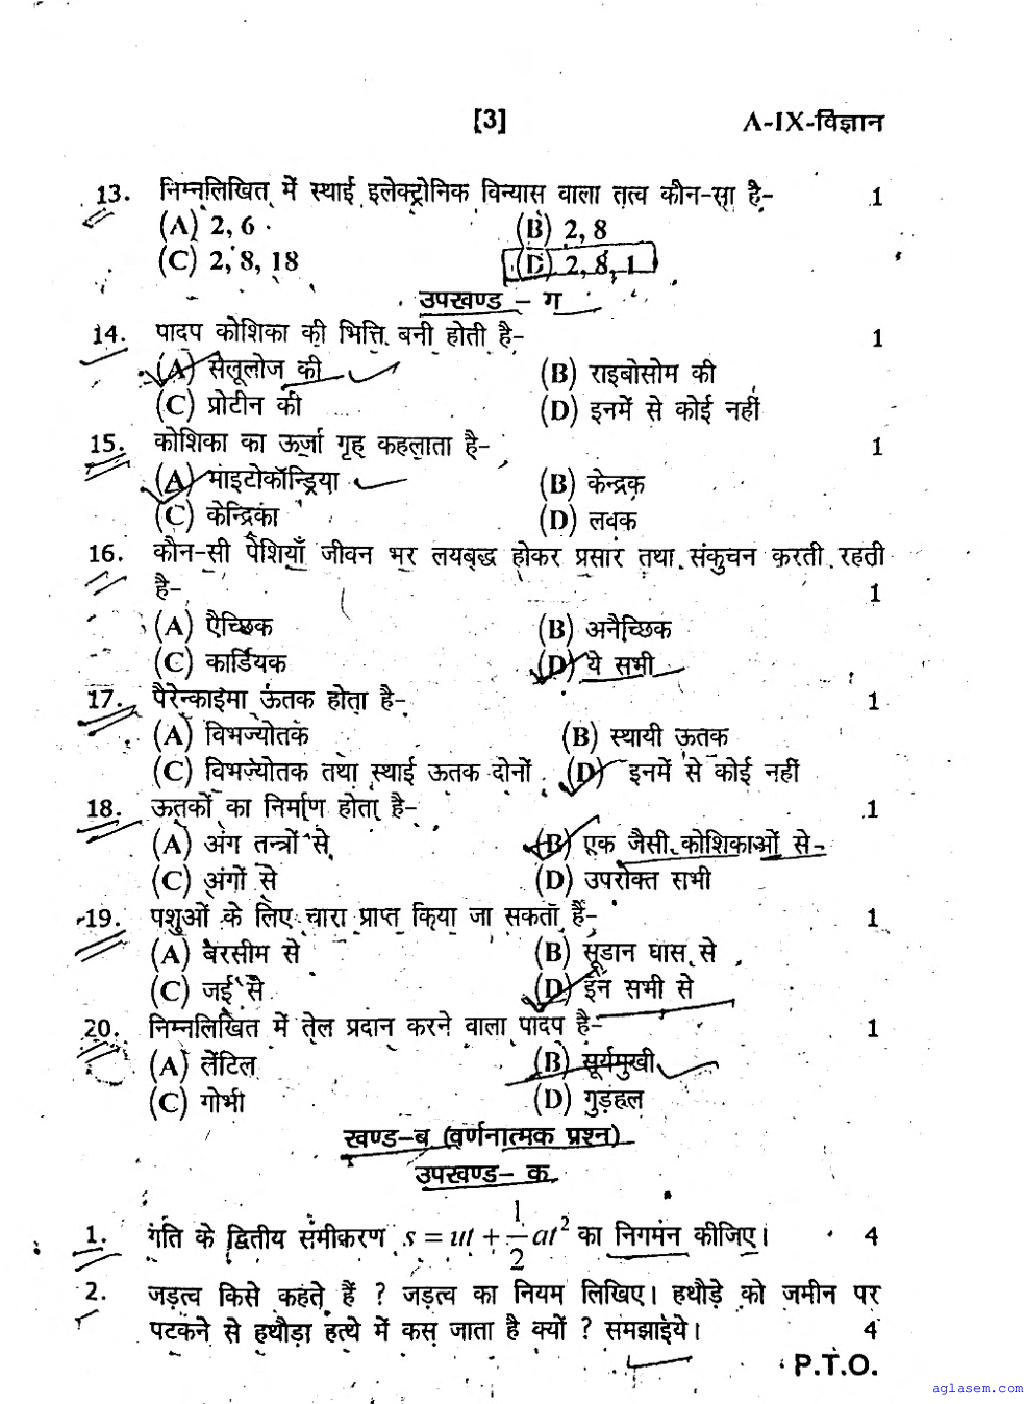 [3] A-IX-विज्ञान
13. निम्नलिखित में स्थाई इलेक्ट्रोनिक विन्यास वाला तत्व कौन-सा है- 1
(A) 2, 6 (B) 2, 8
(C) 2, 8, 18 (D) 2, 8, 1
उपखण्ड - ग
14. पादप कोशिका की भित्ति बनी होती है- 1
(A) सेलूलोज की (B) राइबोसोम की
(C) प्रोटीन की (D) इनमें से कोई नहीं
15. कोशिका का ऊर्जा गृह कहलाता है- 1
(A) माइटोकॉन्ड्रिया (B) केन्द्रक
(C) केन्द्रिका (D) लवक
16. कौन-सी पेशियाँ जीवन भर लयबद्ध होकर प्रसार तथा संकुचन करती रहती
है- 1
(A) ऐच्छिक (B) अनैच्छिक
(C) कार्डियक (D) ये सभी
17. पैरेन्काइमा ऊतक होता है- 1
(A) विभज्योतक (B) स्थायी ऊतक
(C) विभज्योतक तथा स्थाई ऊतक दोनों (D) इनमें से कोई नहीं
18. ऊतकों का निर्माण होता है- 1
(A) अंग तन्त्रों से (B) एक जैसी कोशिकाओं से
(C) अंगों से (D) उपरोक्त सभी
19. पशुओं के लिए चारा प्राप्त किया जा सकता हैं- 1
(A) बरसीम से (B) सूडान घास से
(C) जई से (D) इन सभी से
20. निम्नलिखित में तेल प्रदान करने वाला पादप है- 1
(A) लेंटिल (B) सूर्यमुखी
(C) गोभी (D) गुड़हल
खण्ड-ब (वर्णनात्मक प्रश्न)
उपखण्ड- क
1. गति के द्वितीय समीकरण s = ut + 1/2 at² का निगमन कीजिए। 4
2. जड़त्व किसे कहते हैं ? जड़त्व का नियम लिखिए। हथौड़े को जमीन पर
पटकने से हथौड़ा हत्थे में कस जाता है क्यों ? समझाइये। 4
P.T.O.
aglasem.com